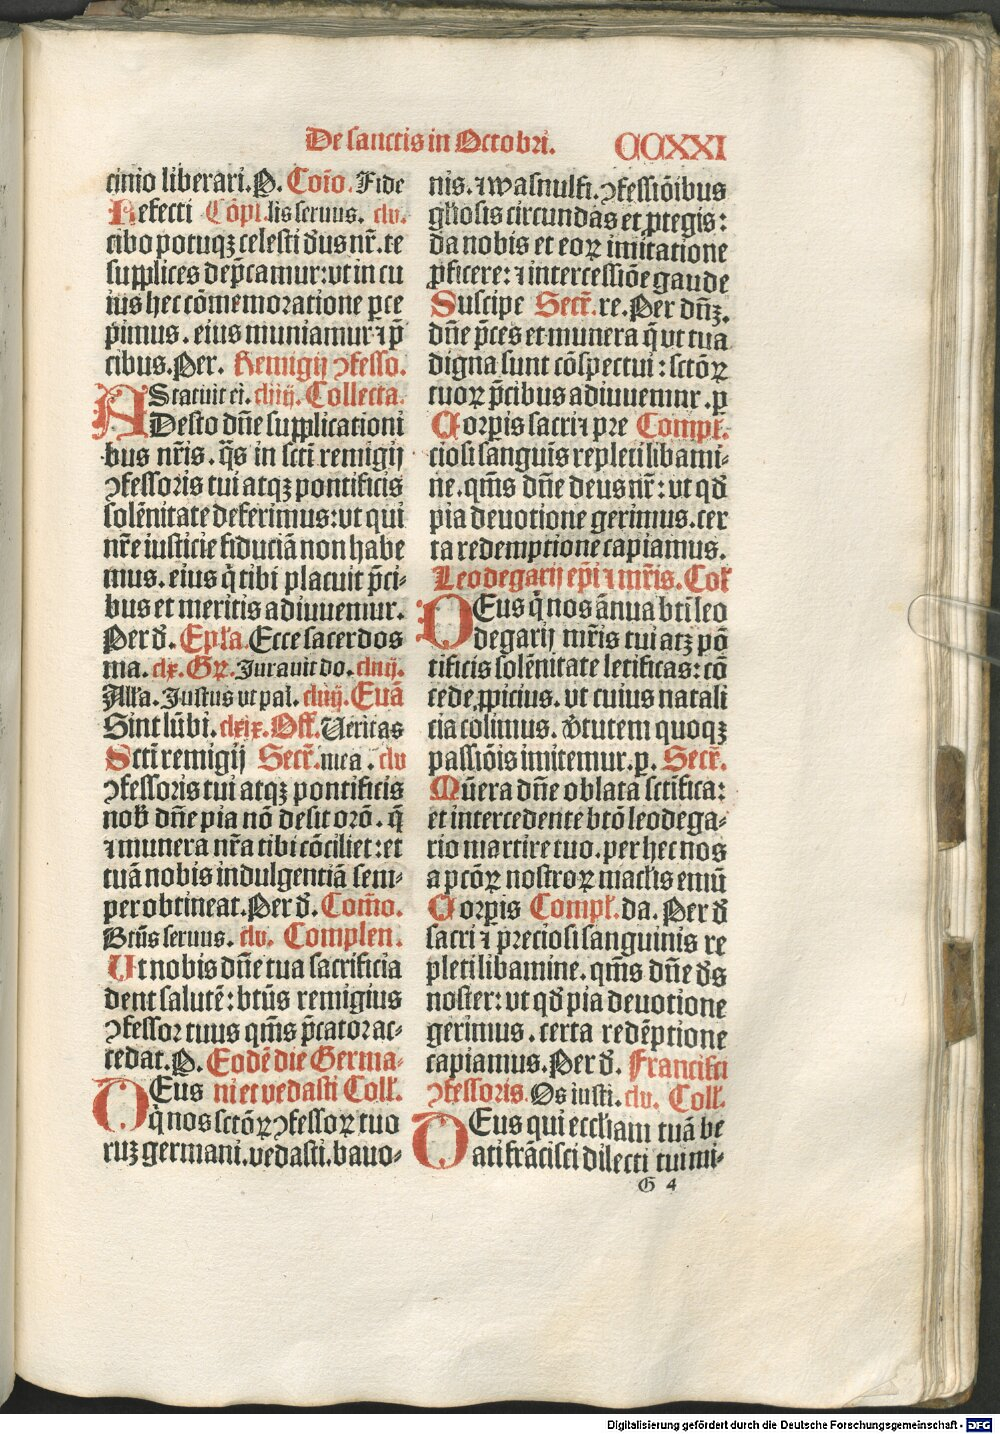 De sanctis in Octobri. CCXXI
cinio liberari. P. Coīo. Fide
Refecti Cōpl. lis seruus. clv.
cibo potuqꝫ celesti d̄us nr̄. te
supplices dep̄camur: vt in cu
ius hec cōmemoratione ꝑce
pimus. eius muniamur ⁊ p̄
cibus. Per. Remigij ꝯfesso.
Statuit ei. cliiij. Collecta.
ADesto dn̄e supplicationi
bus nr̄is. q̄s in sctī remigij
ꝯfessoris tui atqꝫ pontificis
solēnitate deferimus: vt qui
nr̄e iusticie fiduciā non habe
mus. eius q̄ tibi placuit p̄ci-
bus et meritis adiuuemur.
Per d̄. Epl̄a. Ecce sacerdos
ma. clx. Gꝝ. Jurauit do. clviij.
All̄a. Justus vt pal. clviij. Euā
Sint lūbi. clxix. Off. Ueritas
Sctī remigij Secr̄. mea. clv
ꝯfessoris tui atqꝫ pontificis
nob̄ dn̄e pia nō desit orō. q̄
⁊ munera nr̄a tibi cōciliet: et
tuā nobis indulgentiā sem-
per obtineat. Per d̄. Com̄o.
Btūs seruus. clv. Complen.
Ut nobis dn̄e tua sacrificia
dent salutē: btūs remigius
ꝯfessor tuus qm̄s p̄cator ac-
cedat. P. Eodē die Germa-
DEus ni et vedasti Coll̄.
q̄ nos sctōꝝ ꝯfessoꝝ tuo
ruꝫ germani. vedasti. bauo-
nis. ⁊ wasnulfi. ꝯfessiōibus
gl̄iosis circundas et ꝓtegis:
da nobis et eoꝝ imitatione
ꝓficere: ⁊ intercessiōe gaude
Suscipe Secr̄. re. Per dn̄ꝫ.
dn̄e p̄ces et munera q̄ vt tua
digna sunt cōspectui: sctōꝝ
tuoꝝ p̄cibus adiuuemur. ꝑ
Corꝑis sacri ⁊ pre Compl̄.
ciosi sanguīs repleti libami-
ne. qm̄s dn̄e deus nr̄: vt qd̄
pia deuotione gerimus. cer
ta redemptione capiamus.
Leodegarij ep̄i ⁊ mr̄is. Col̄
DEus q̄ nos ānua bti leo
degarij mr̄is tui atꝫ pō
tificis solēnitate letificas: cō
cede ꝓpicius. vt cuius natali
cia colimus. v̄tutem quoqꝫ
passiōis imitemur. ꝑ. Secr̄.
Mūera dn̄e oblata sctifica:
et intercedente btō leodega-
rio martire tuo. per hec nos
a pctōꝝ nostroꝝ macl̄is emū
Corꝑis Compl̄. da. Per d̄
sacri ⁊ preciosi sanguinis re
pleti libamine. qm̄s dn̄e d̄s
noster: vt qd̄ pia deuotione
gerimus. certa redēptione
capiamus. Per d̄. Francisci
ꝯfessoris. Os iusti. clv. Coll̄.
DEus qui eccl̄iam tuā be
ati frācisci dilecti tui mi-
G 4
Digitalisierung gefördert durch die Deutsche Forschungsgemeinschaft - DFG